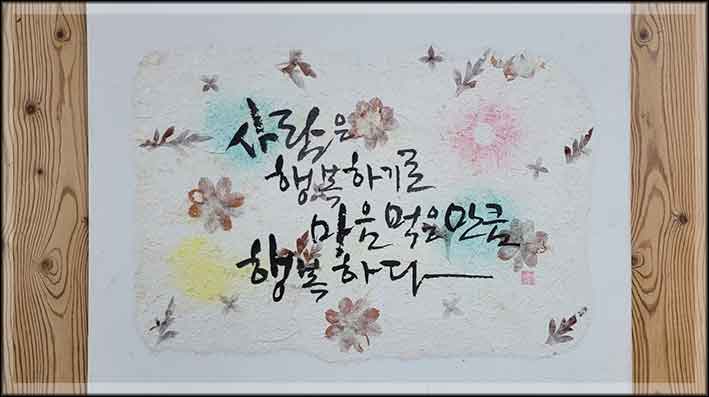 사람은
행복하기로
마음먹은만큼
행복하다